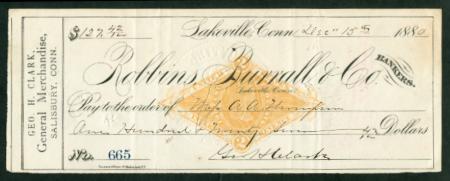 GEO. H. CLARK,
General Merchandise,
SALISBURY, CONN.
$127.42
Lakeville, Conn. Decr 15th 1880
Robbins, Burrall & Co.
BANKERS.
Lakeville, Conn.
Pay to the order of A. A.
One Hundred & Twenty Seven 42 Dollars
No. 665
Geo H Clark